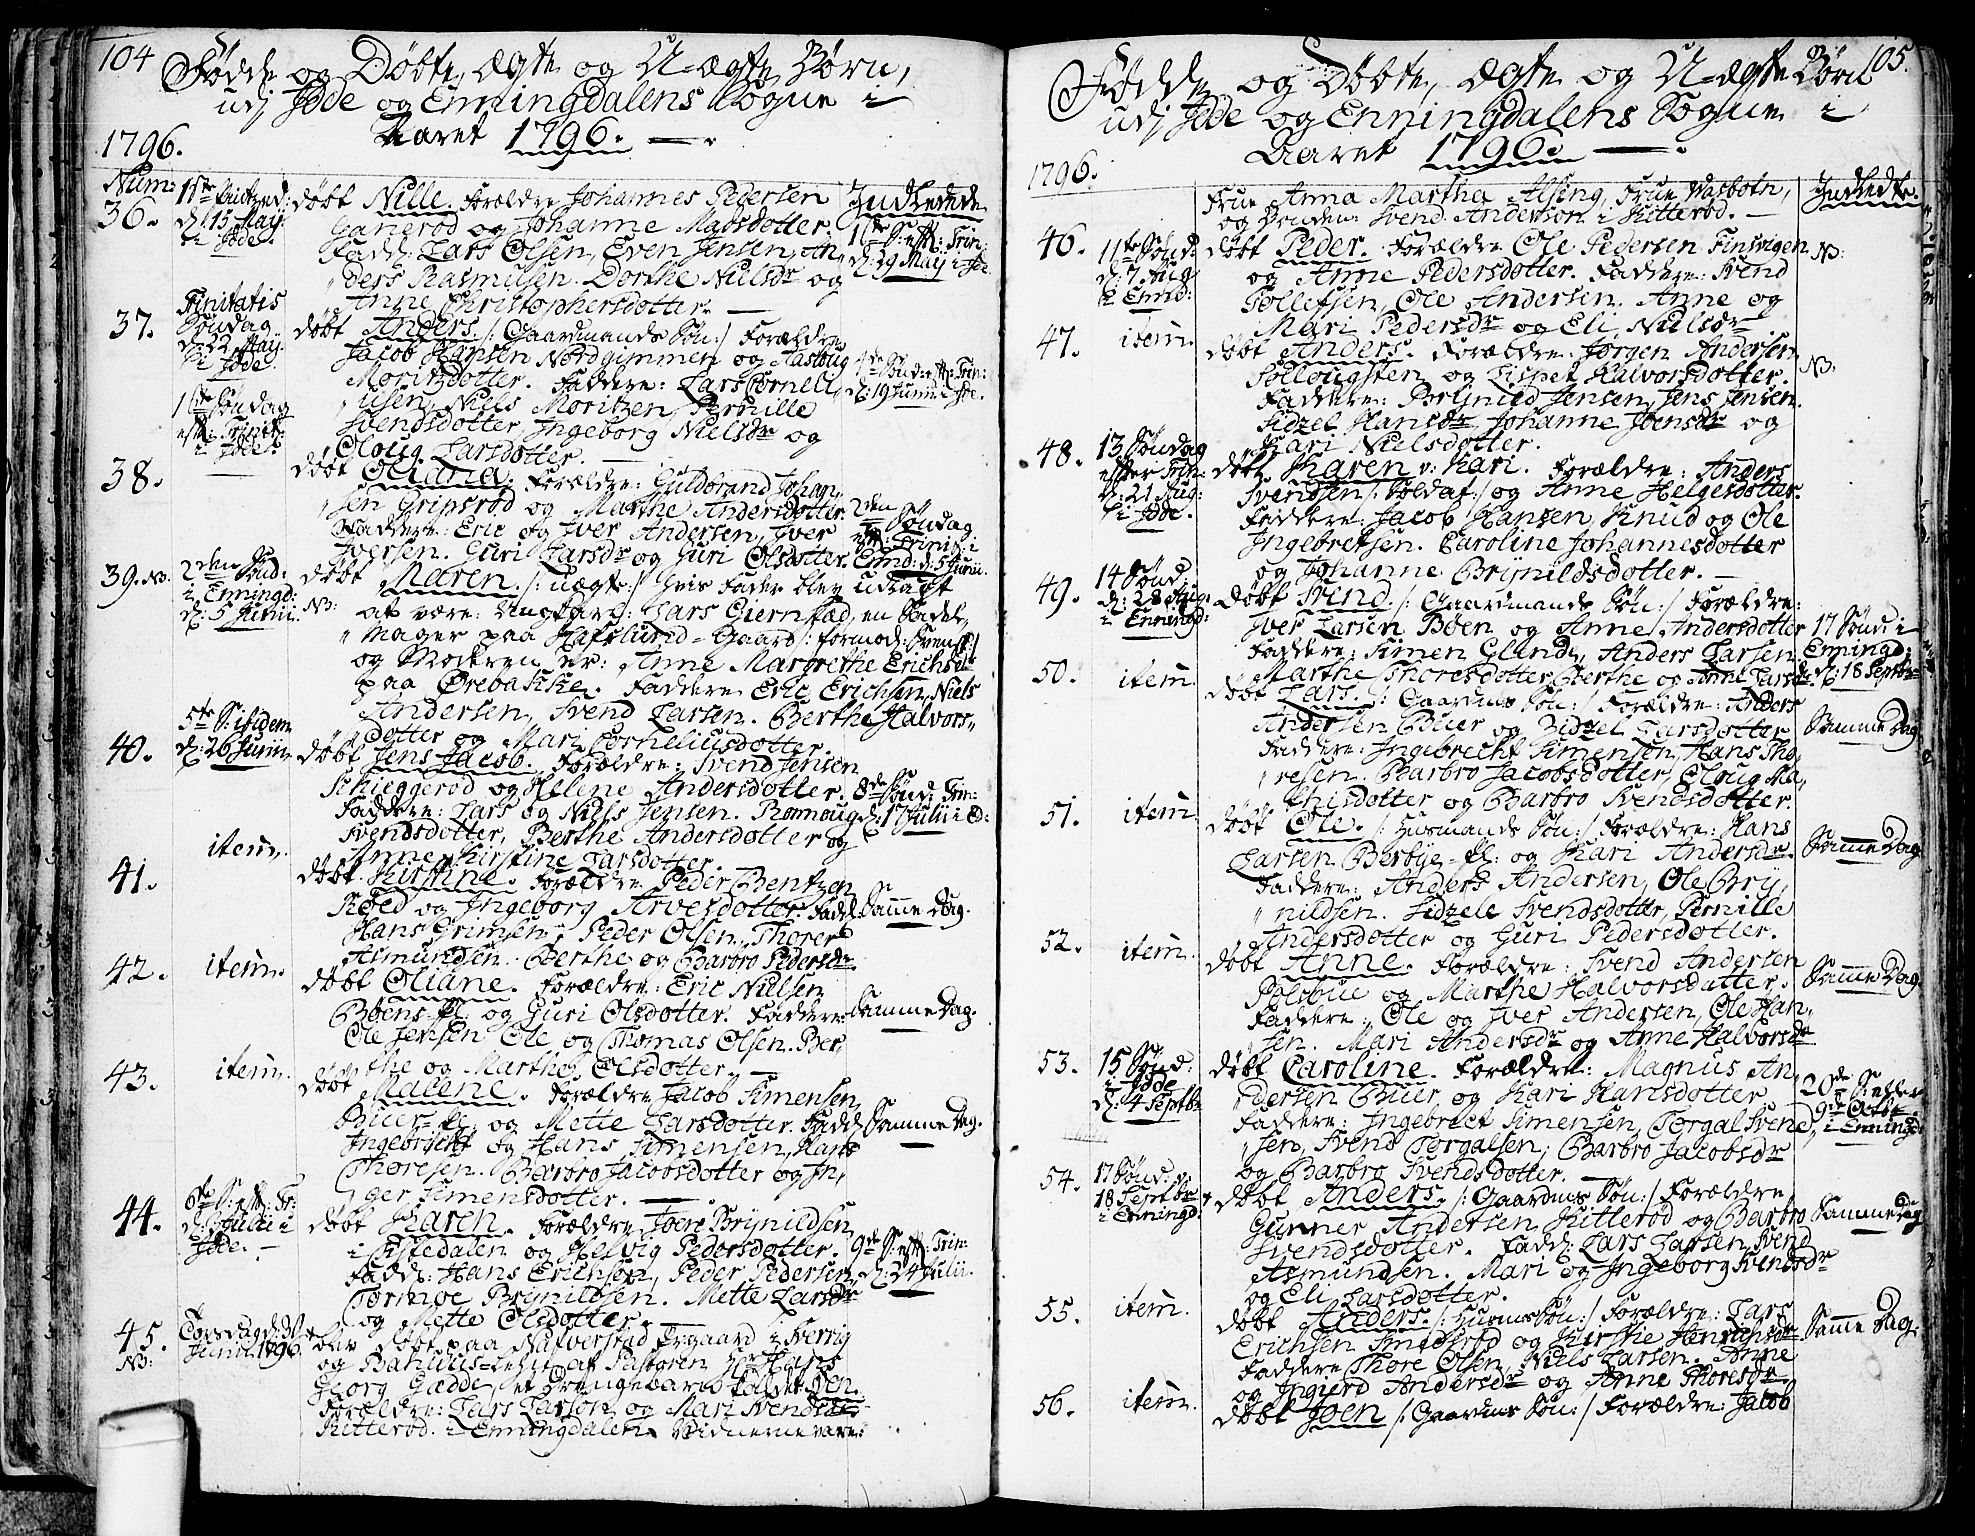 104
Fødde og Døbte, ægte og U-ægte Børn,
udj Idde og Enningdalens Sogne i
Aaret 1796.
1796.
Num:
36. 1ste Pintzed: d: 15 May i Idde.
døbt Nille. Forældre Johannes Pedersen
Ganerød og Johanne Madsdotter.
Fadd: Lars Olsen, Even Jensen, An
ders Rasmusen. Dorthe Nielsdr og
Anne Christophersdotter.
Indledede
1ste S: eft: Trin:
d: 29 Maij i Idde.
37. Trinitatis
Søndag
d: 22 May.
i Idde.
døbt Anders. /: Gaardmands Søn:/ Forældre
Jacob Hansen Nordgimmen og Aasloug
Moritzdotter. Faddere: Lars Corneli
usen, Niels Moritzen, Pernille
Svendsdotter Ingeborg Nielsdr og
Oloug Larsdotter.
4de Sønd: eft: Trin:
d: 19 Junii i Idde.
38. 1ste Søndag
eft: Trinit:
i Idde.
døbt Oliana. Forældre: Guldbrand Johan
sen Gripsrød og Marthe Andersdotter.
Faddere: Eric og Iver Andersen, Iver
Iversen. Guri Larsdr og Guri Olsdotter.
2den Søndag
eft: Trinit: i
Emd: d: 5 Junii.
39. NB. 2den Sønd:
i Enningd:
d: 5 Junii.
NB:
døbt Maren. /: uægte:/ Hvis Fader blev udlagt
at være: Ungkarl: Lars Giernstad, en Sadel
mager paa Hafslund-Gaard /: formod: Svensk:/
og Moderen er: Anne Margrethe Erichsdr
paa Ørebakke. Faddere Eric Erichsen, Niels
Andersen, Svend Larsen. Berthe Halvors-
dotter og Mari Corneliusdotter.
40. 5te S: ibidem
d: 26 Junii.
døbt Jens Jacob. Forældre: Svend Jensen
Schieggerød og Helene Andersdotter.
Faddere: Lars og Niels Jensen. Romoug
Svendsdotter, Berthe Andersdotter og
Anne Kirstine Larsdotter.
8de Sønd: Trin:
d: 17 Julii i Ed:
41. item.
døbt Kirstine. Forældre Peder Bentzen
Røed og Ingeborg Arvesdotter. Fadd:
Hans Grimsen, Peder Olsen, Thorer
Asmundsen. Berthe og Barbro Pedersdr.
Samme Dag.
42. item.
døbt Oliane. Forældre: Eric Nielsen
Bøens-Pl: og Guri Olsdotter. Faddere:
Ole Jensen Ole og Thomas Olsen. Ber
the og Marthe Olsdotter.
Samme Dag.
43. item.
døbt Malene. Forældre Jacob Simensen
Buer-Pl: og Mette Larsdotter. Fadd:
Ingebrecht og Hans Simensen, Hans
Thoresen. Barbro Jacobsdotter og In
ger Simensdotter.
Samme Dag.
44. 6te S: eft: Tr:
d: 3 Julii i
Idde.
døbt Karen. Forældre Joen Brynildsen
iYstedalen og Helvig Pedersdotter.
Fadd: Hans Erichsen, Peder Pedersen,
Tormoe Brynildsen. Mette Larsdr
og Mette Olsdotter.
9de S: eft: Trin:
d: 24 Julii.
45. NB: Torsdag d: 30
Junii 1796.
blev døbt paa Nafverstad Prgaard i Sverrig
og Bahuus-Lehn af Pastoren Hr Hans
Georg Gædde, et Drengebarn kaldet Jen.
Forældre: Lars Larson og Mari Svendsdr
Kitterød i Enningdalen. Vidnerne vare:
105.
Fødde og Døbte, ægte og U-ægte Børn
udj Idde og Enningdalens Sogne i
Aaret 1796.
1796.
Frue Anna Martha Alsing, Frue Wasbotn,
og Bonden Svend Anderson i Kitterød.
Indledte.
46. 11te Sønd:
d: 7 Aug:
i Emd:
døbt Peder. Forældre Ole Pedersen Finsvigen
og Anne Pedersdotter. Faddere: Svend
Tollefsen, Ole Andersen. Anne og
Mari Pedersdr og Eli Nielsdr
NB:
47. item.
døbt Anders. Forældre: Jørgen Andersen
Sollougsten og Lispet Halvorsdotter.
Faddere: Brynild Jensen, Jens Jensen.
Sidzel Hansdr Johanne Joensdr og
Kari Nielsdotter.
NB:
48. 13 Søndag
efter Trin:
d: 21 Aug:
i Idde.
døbt Karen v: Kari. Forældre: Anders
Svendsen /: Soldat:/ og Anne Helgesdotter.
Faddere: Jacob Hansen, Knud og Ole
Ingebretsen. Caroline Johannesdotter
og Johanne Brynildsdotter.
49. 14 Sønd:
d: 28 Aug:
i Enningd:
døbt Svend. /: Gaardmands Søn:/ Forældre:
Iver Larsen Bøen og Anne Andersdotter
Faddere: Simen Glende, Anders Larsen
Marthe Thoresdotter, Berthe og Anne Larsdr
17 Sønd: i
Enningd:
d: 18 Septbr
50. item.
døbt Lars. /: Gaardms Søn:/ Forældre: Anders
Andersen Buer og Zidzel Larsdotter
Faddere: Ingebrecht Simensen, Hans Tho
resen. Barbro Jacobsdotter, Oloug Ma
thisdotter og Barbro Svendsdotter.
Samme Dag
51. item.
døbt Ole. /: Husmands Søn:/ Forældre: Hans
Larsen Berbye-Pl: og Kari Andersdr.
Faddere: Anders Andersen, Ole Bry
nildsen. Sidzele Svendsdotter, Pernille
Andersdotter og Guri Pedersdotter.
Samme Dag
52. item.
døbt Anne. Forældre: Svend Andersen
Polsbue og Marthe Halvorsdotter.
Faddere: Ole og Iver Andersen, Ole Han
sen. Mari Andersdr og Anne Halvorsdr
Samme Dag.
53. 15 Sønd.
i Idde
d: 4 Septbr
døbt Caroline. Forældre: Magnus An
dersen Buer og Kari Hansdotter
Faddere: Ingebrect Simensen, Torgal Svend
sen, Svend Torgalsen, Barbro Jacobsdr
og Barbro Svendsdotter.
20de S: efter
9de Octbr.
i Enningd:
54. 17 Sønd: d:
18 Septbr
i Enningd:
døbt Anders. /: Gaardms Søn:/ Forældre
Gunner Andersen Kitterød og Barbro
Svendsdotter. Fadd: Lars Larsen, Svend
Asmundsen. Mari og Ingeborg Svendsdr
og Eli Larsdotter.
Samme Dag
55. item.
døbt Anders. /: Husms Søn:/ Forældre: Lars
Erichsen Smidsrød og Kirstie Henrichsdr
Faddere Thore Olsen, Niels Larsen. Anne
og Ingierd Andersdr og Anne Thoresdr.
Samme Dag.
56. item.
døbt Joen /: Gaardms Søn:/ Forældre: Jacob